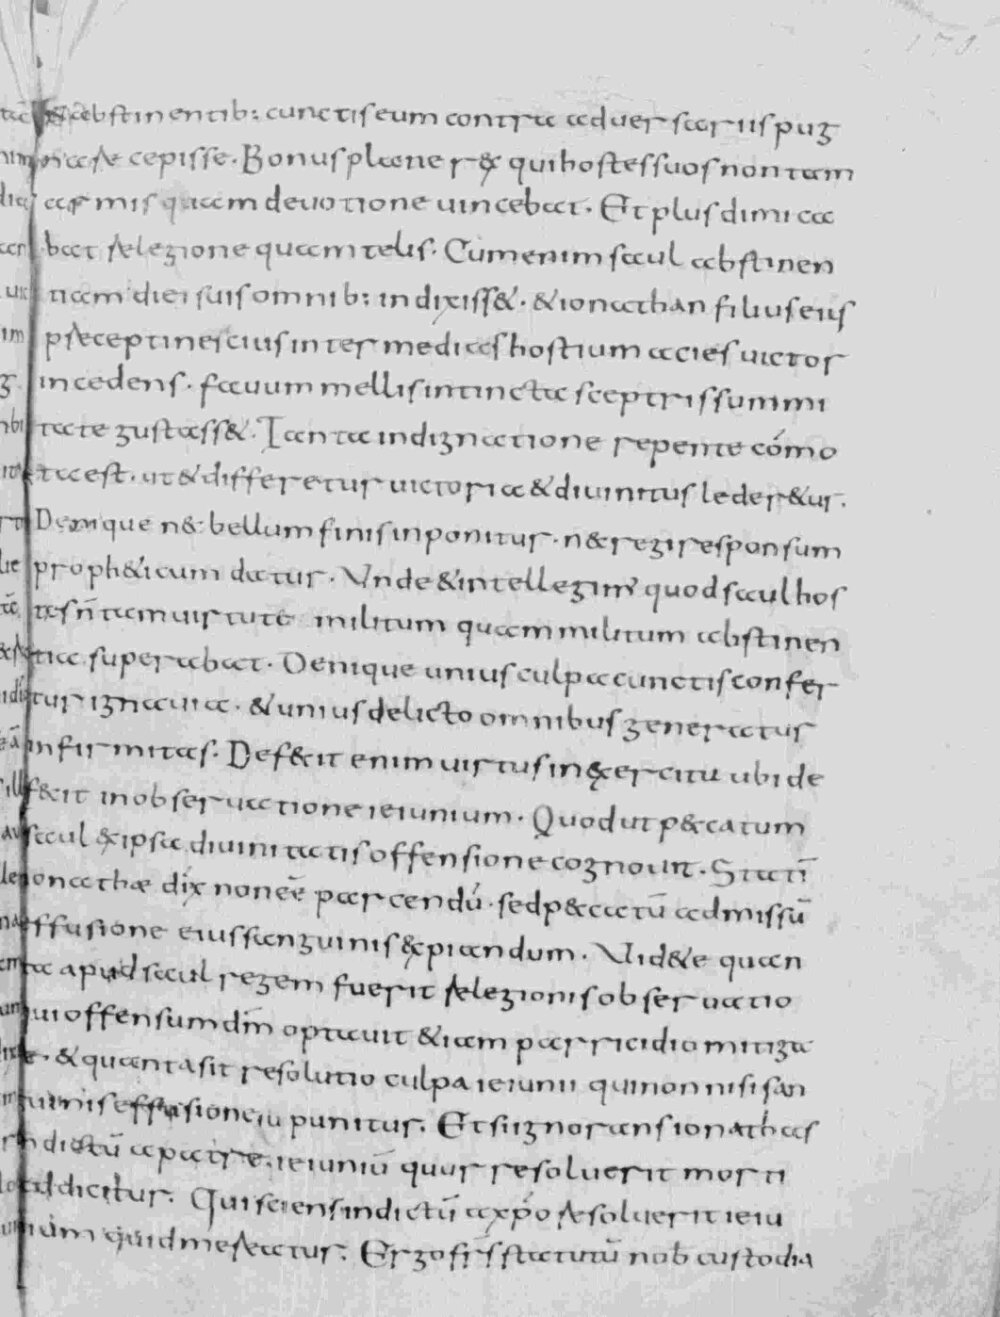 & abstinentib; cunctis eum contra aduersariis pug
nase cepisse. Bonus plane r& qui hostes suos non tam
armis quam deuotione uincebat. Et plus dimica
bat relegione quam telis. Cum enim saul abstinen
tiam diei suis omnib; indixiss&. & ionathan filius eius
precepti nescius inter medias hostium acies uictor
incedens. fauum mellis intincta sceptri summi
tate gustass&. Tanta indignatione repente cómo
ta est. ut & differetur uictoria & diuinitus leder&ur.
Denique ne& bellum finis inponitur. ne& regi responsum
proph&icum datur. Vnde & intellegim' quod saul hos
tes n̄ tam uirtute militum quam militum abstinen
tia superabat. Denique unius culpa cunctis confer
tur ignauia. & unius delicto omnibus generatur
infirmitas. Def&it enim uirtus in ex&ercitu ubi de
f&it in obseruatione ieiunium. Quod ut p&catum
saul & ipsa diuinitatis offensione cognouit. Statī
ionathæ dix̄ non eē parcendū. sed p&catū admissū
effusione eius sanguinis expiandum. Vid&e quan
ta apud saul regem fuerit relegionis obseruatio
qui offensum dm̄ optauit & iam parricidio mitiga
re. & quanta sit resolutio culpa ieiunii qui non nisi san
guinis effusione punitur. Et si ignorans ionathas
indictū a patre. ieiuniū quur resoluerit morti
addicitur. Qui sciens indictū a xp̄o resoluerit ieiu
nium quid mereatur. Ergo fr̄s statutū nob custodia